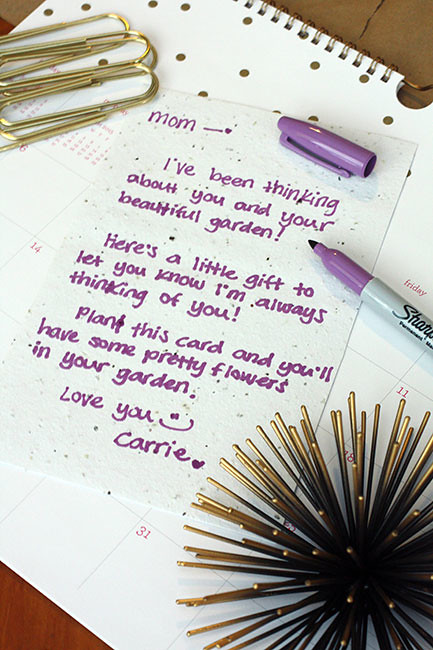 mom —
I've been thinking
about you and your
beautiful garden!
Here's a little gift to
let you know I'm always
thinking of you!
Plant this card and you'll
have some pretty flowers
in your garden.
Love you
Carrie
friday
14
Sharpie
Permanent
11
18
31